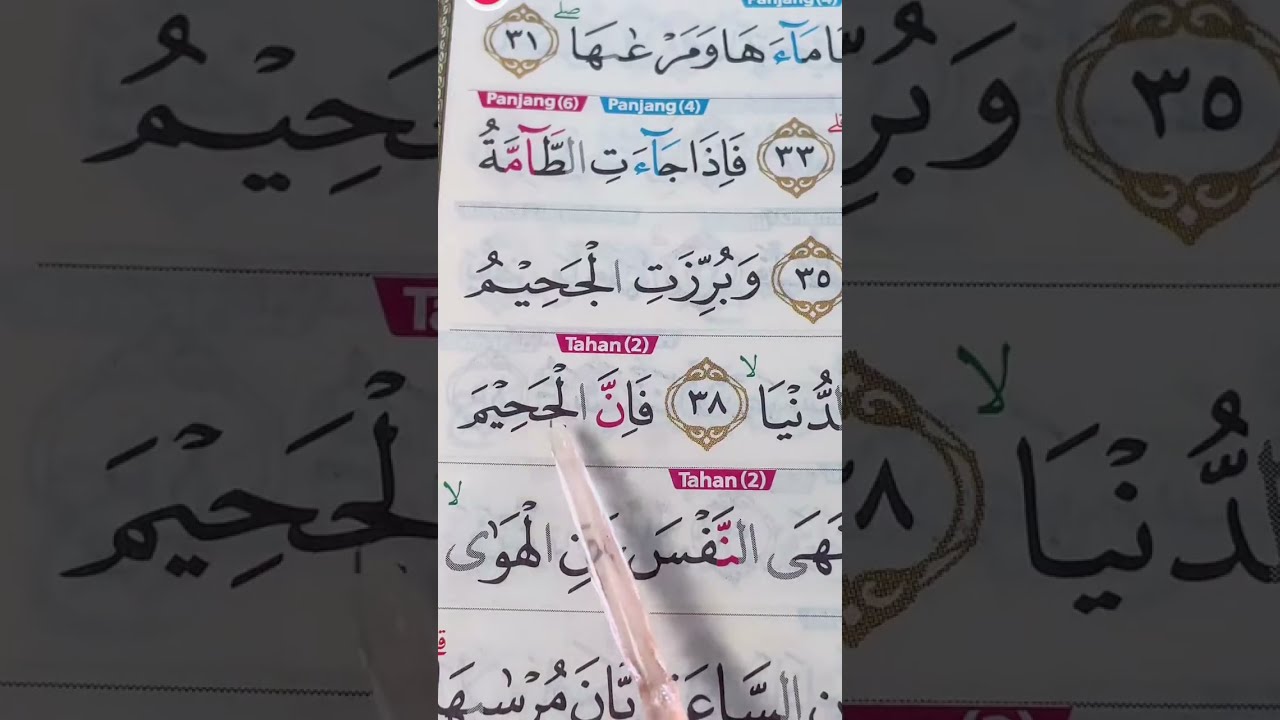 Panjang (4)
مَآءَهَا وَمَرْعٰىهَا ۖ ٣١
Panjang (6) Panjang (4)
٣٣ فَاِذَا جَآءَتِ الطَّآمَّةُ
٣٥ وَبُرِّزَتِ الْجَحِيْمُ
Tahan (2)
الدُّنْيَا ۙ ٣٨ فَاِنَّ الْجَحِيْمَ
Tahan (2)
نَهَى النَّفْسَ عَنِ الْهَوٰى ۙ
السَّاعَةِ اَيَّانَ مُرْسٰىهَا